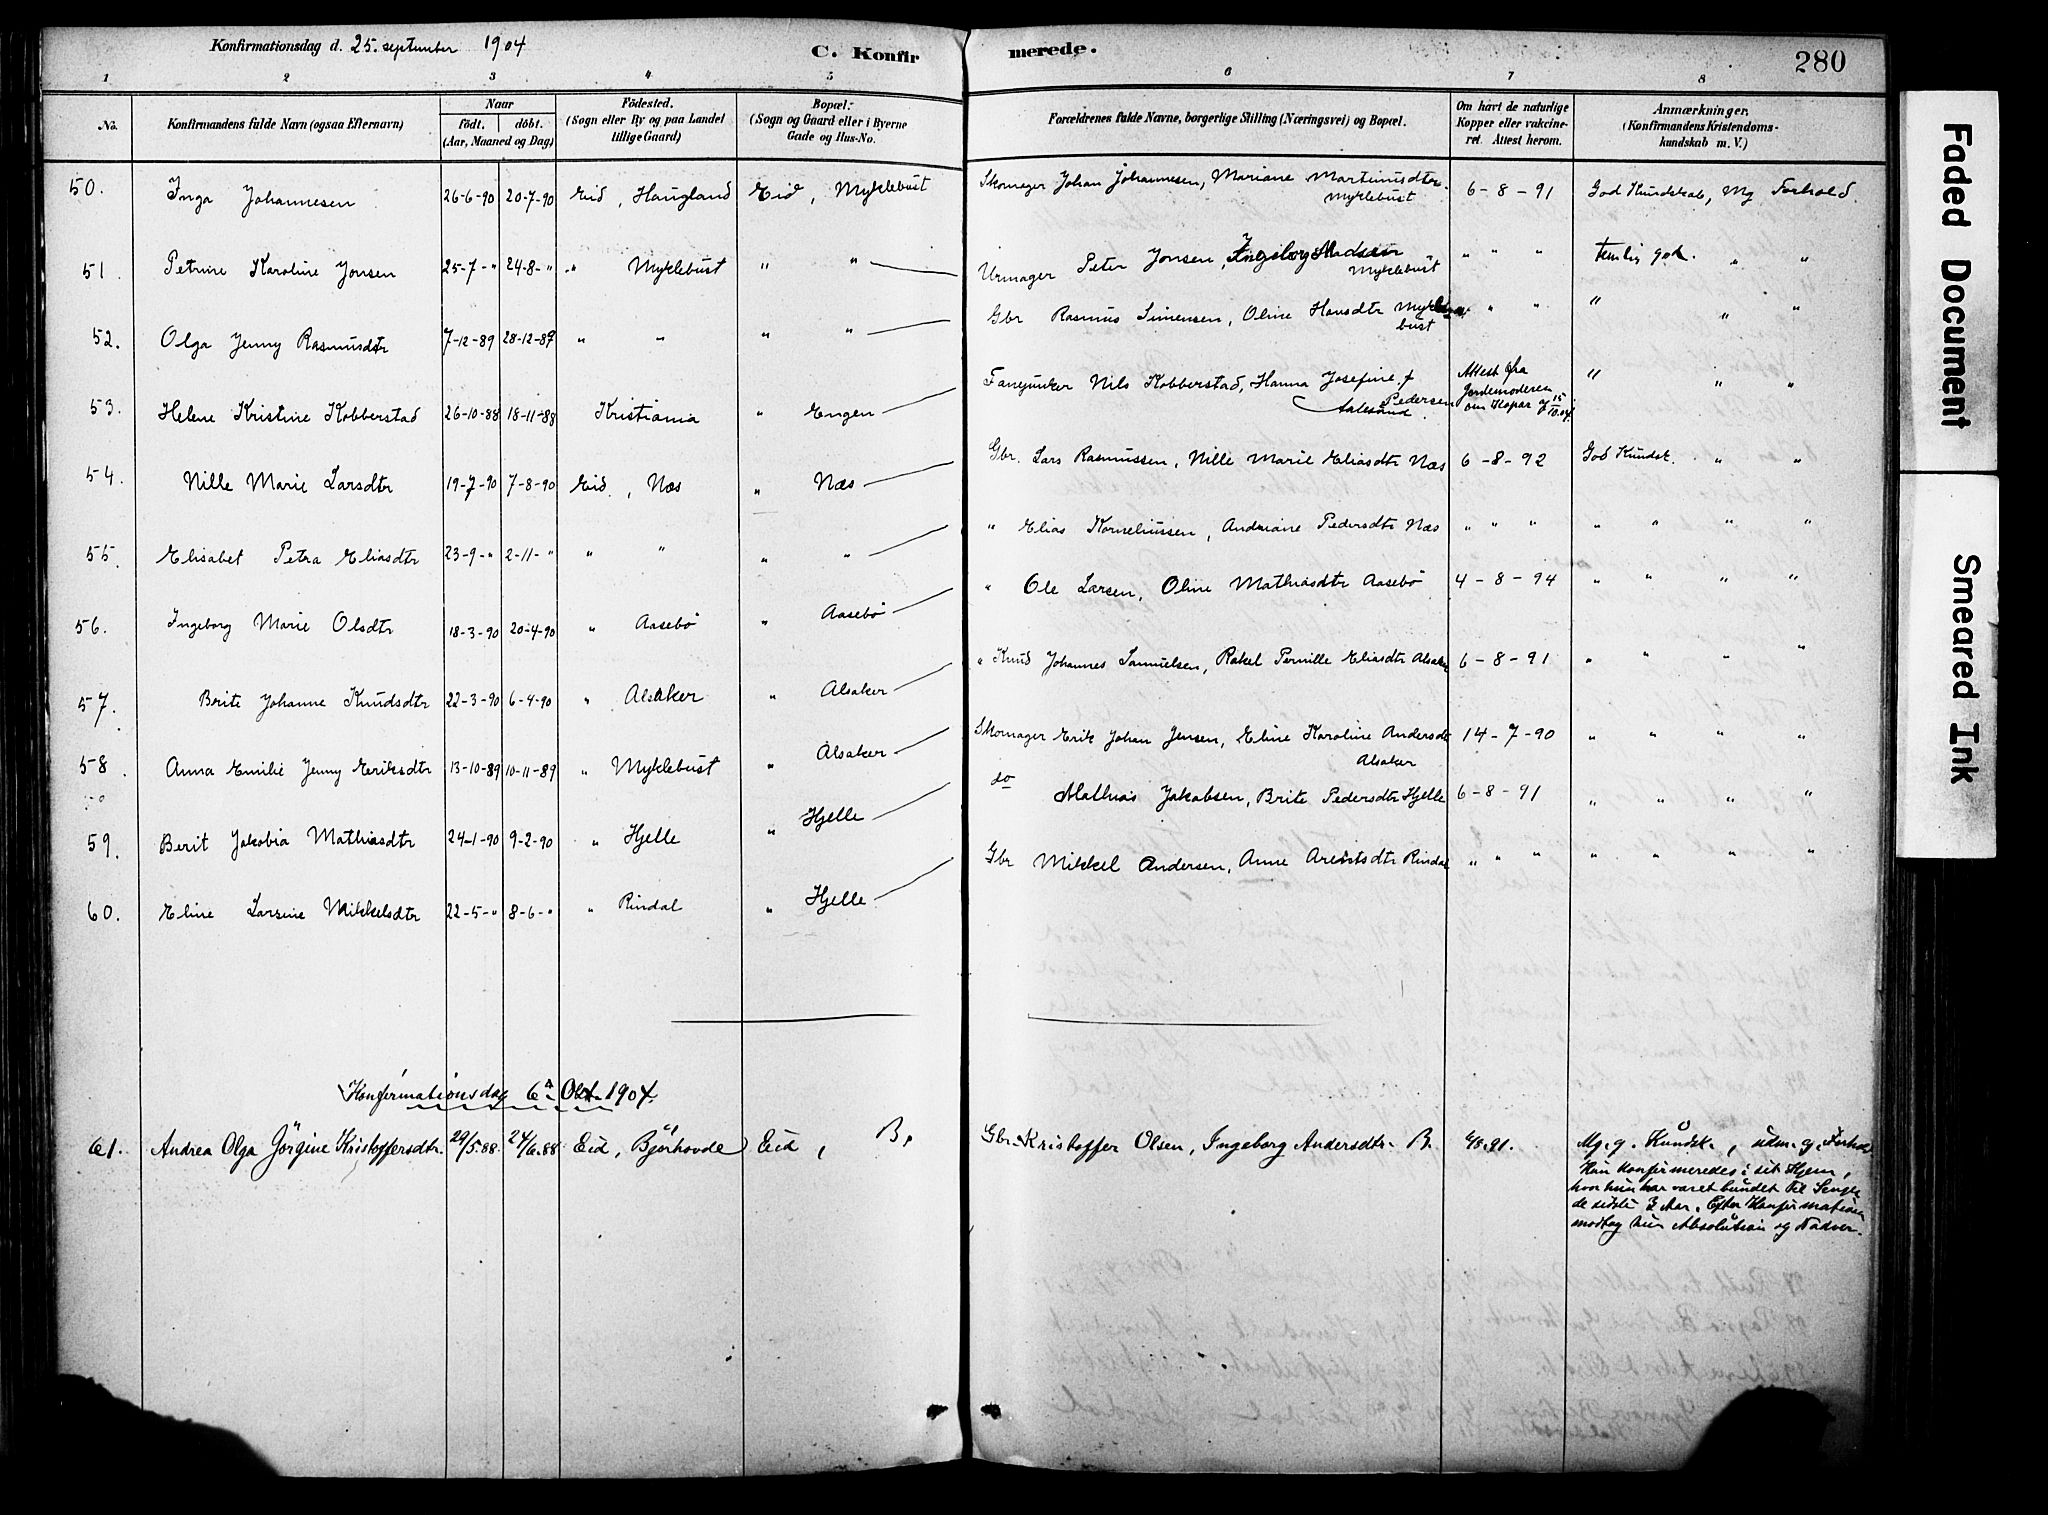 Konfirmationsdag d. 25. september 1904 C. Konfirmerede. 280
1 2 3 4 5 6 7 8
No. Konfirmandens fulde Navn (ogsaa Efternavn) Naar födt. döbt. (Aar, Maaned og Dag) Födested. (Sogn eller By og paa Landet tillige Gaard) Bopæl. (Sogn og Gaard eller i Byerne Gade og Hus-No. Forældrenes fulde Navne, borgerlige Stilling (Næringsvei) og Bopæl. Om havt de naturlige Kopper eller vakcineret. Attest herom. Anmærkninger. (Konfirmandens Kristendomskundskab m. V.)
50. Inga Johannesen 26-6-90 20-7-90 Eid, Haugland Eid, Myklebust Skomager Johan Johannesen, Mariane Martinusdtr. Myklebust 6-8-91 God Kundskab, Mg Forhold.
51. Petrine Karoline Jonsen 25-7-" 24-8-" " Myklebust " " Urmager Peter Jonsen, Ingeborg Madsen Myklebust " " " temlig god. " "
52. Olga Jenny Rasmusdtr 7-12-89 28-12-89 " " " " Gbr Rasmus Simensen, Oline Hansdtr Myklebust " " " " " "
53. Helene Kristine Kobberstad 26-10-88 18-11-88 Kristiania " Engen Fanejunker Nils Kobberstad, Hanna Josefine f Pedersen Aalesund. Attest fra Jordemoderen om Kopar " " "
54. Nille Marie Larsdtr 19-7-90 7-8-90 Eid, Næs " Næs Gbr. Lars Rasmussen, Nille Marie Eliasdtr Næs 6-8-92 God Kundsk. " "
55. Elisabet Petra Eliasdtr 23-9-" 2-11-" " " " " " Elias Korneliussen, Andriane Pedersdtr Næs " " " " " " "
56. Ingeborg Marie Olsdtr 18-3-90 20-4-90 " Aasebø " Aasebø " Ole Larsen, Oline Mathiasdtr Aasebø 4-8-94 " " " "
57. Berite Johanne Knudsdtr 22-3-90 6-4-90 " Alsaker " Alsaker " Knud Johannes Samuelsen, Rakel Pernille Eliasdtr Alsaker 6-8-91 " " " "
58. Anna Emilie Jenny Eriksdtr 13-10-89 10-11-89 " Myklebust " Alsaker Skomager Erik Johan Jensen, Eline Karoline Andersdt Alsaker 14-7-90 " " " "
59. Berit Jakobia Mathiasdtr 24-1-90 9-2-90 " Hjelle " Hjelle do Mathias Jakobsen, Brite Pedersdtr Hjelle 6-8-91 " " " "
60. Eline Larsine Mikkelsdtr 22-5-" 8-6-" " Rindal " Hjelle Gbr Mikkel Andersen, Anne Arentsdtr Rindal " " " " " " "
Konfirmationsdag 6. Okt. 1904.
61. Andrea Olga Görgine Kristoffersdtr. 29/5.88 24/6.88 Eid, Bjørhovde Eid, B. Gbr. Kristoffer Olsen, Ingeborg Andersdtr. B. 4/8.91. Mg. g. Kundsk., udm. g. Forhold
Hun konfirmeredes i sit Hjem,
hvor hun har været bundet til Senge
de sidste 3 Aar. Efter Konfirmationen
modtog hun Absolution og Nadver.
Faded Document
Smeared Ink